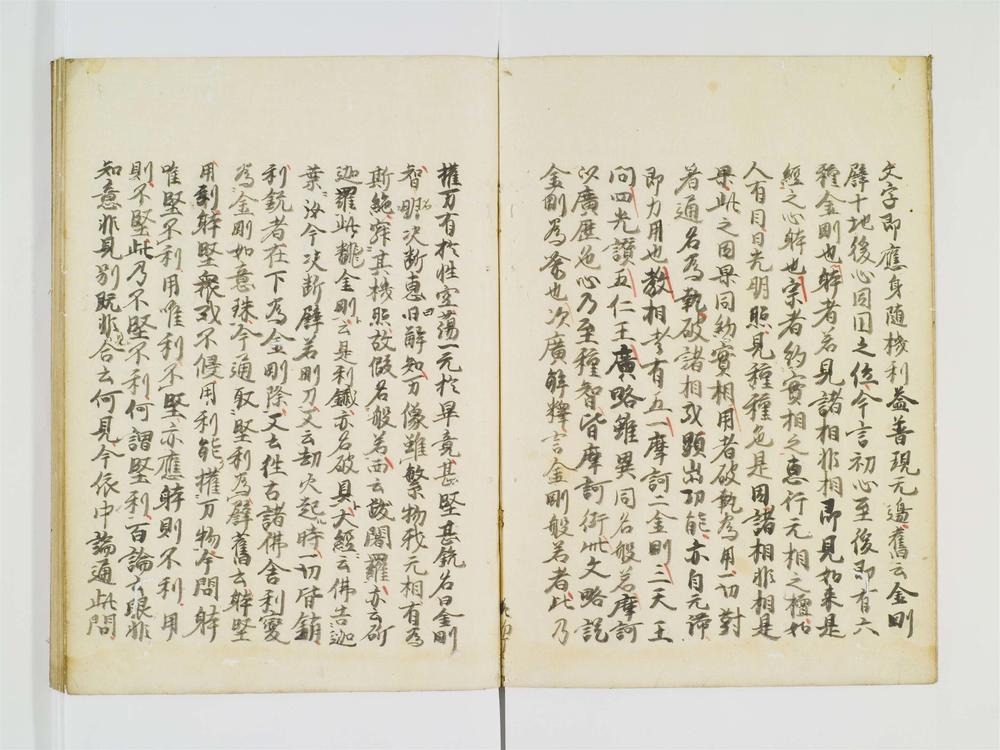 文字即應身随機利益善現元邊舊云金剛
譬十地後心同円之位今言初心至後即有六
種金剛也躰者若見諸相非相即見如来是
經之心躰也宗者約實相之恵行元相之檀如
人有目日光明照見種種色是因諸相非相是
果此之因果同約實相用者破執為用一切對
著通名為執破諸相或顕出功能亦自元滞
即力用也教相者有五一摩訶二金剛三天王
問四光讃五仁王廣略雖異同名般若摩訶
以廣歴色心乃至種智皆摩訶衍此文略説
金剛為喩也次廣解釋言金剛般若者此乃
摧万有於性空蕩一元於畢竟甚堅甚銳名曰金剛
智名明决断恵曰解知万像雖繁物我元相有為
斯絶寂其機照故假名般若西云跋闍羅亦云斫
迦羅此翻金剛云是利鐵亦名破具大經云佛告迦
葉汝今决断譬若剛刀又云劫火起時一切皆銷
利銳者在下為金剛際又云徃古諸佛舎利變
為金剛如意珠今通取堅利為譬舊云躰堅
用利躰堅衆或不侵用利能摧万物今問躰
唯堅不利用唯利不堅亦應躰則不利用
則不堅此乃不堅不利何謂堅利百論云眼非
知意非見別既非合云何見今依中論通此問